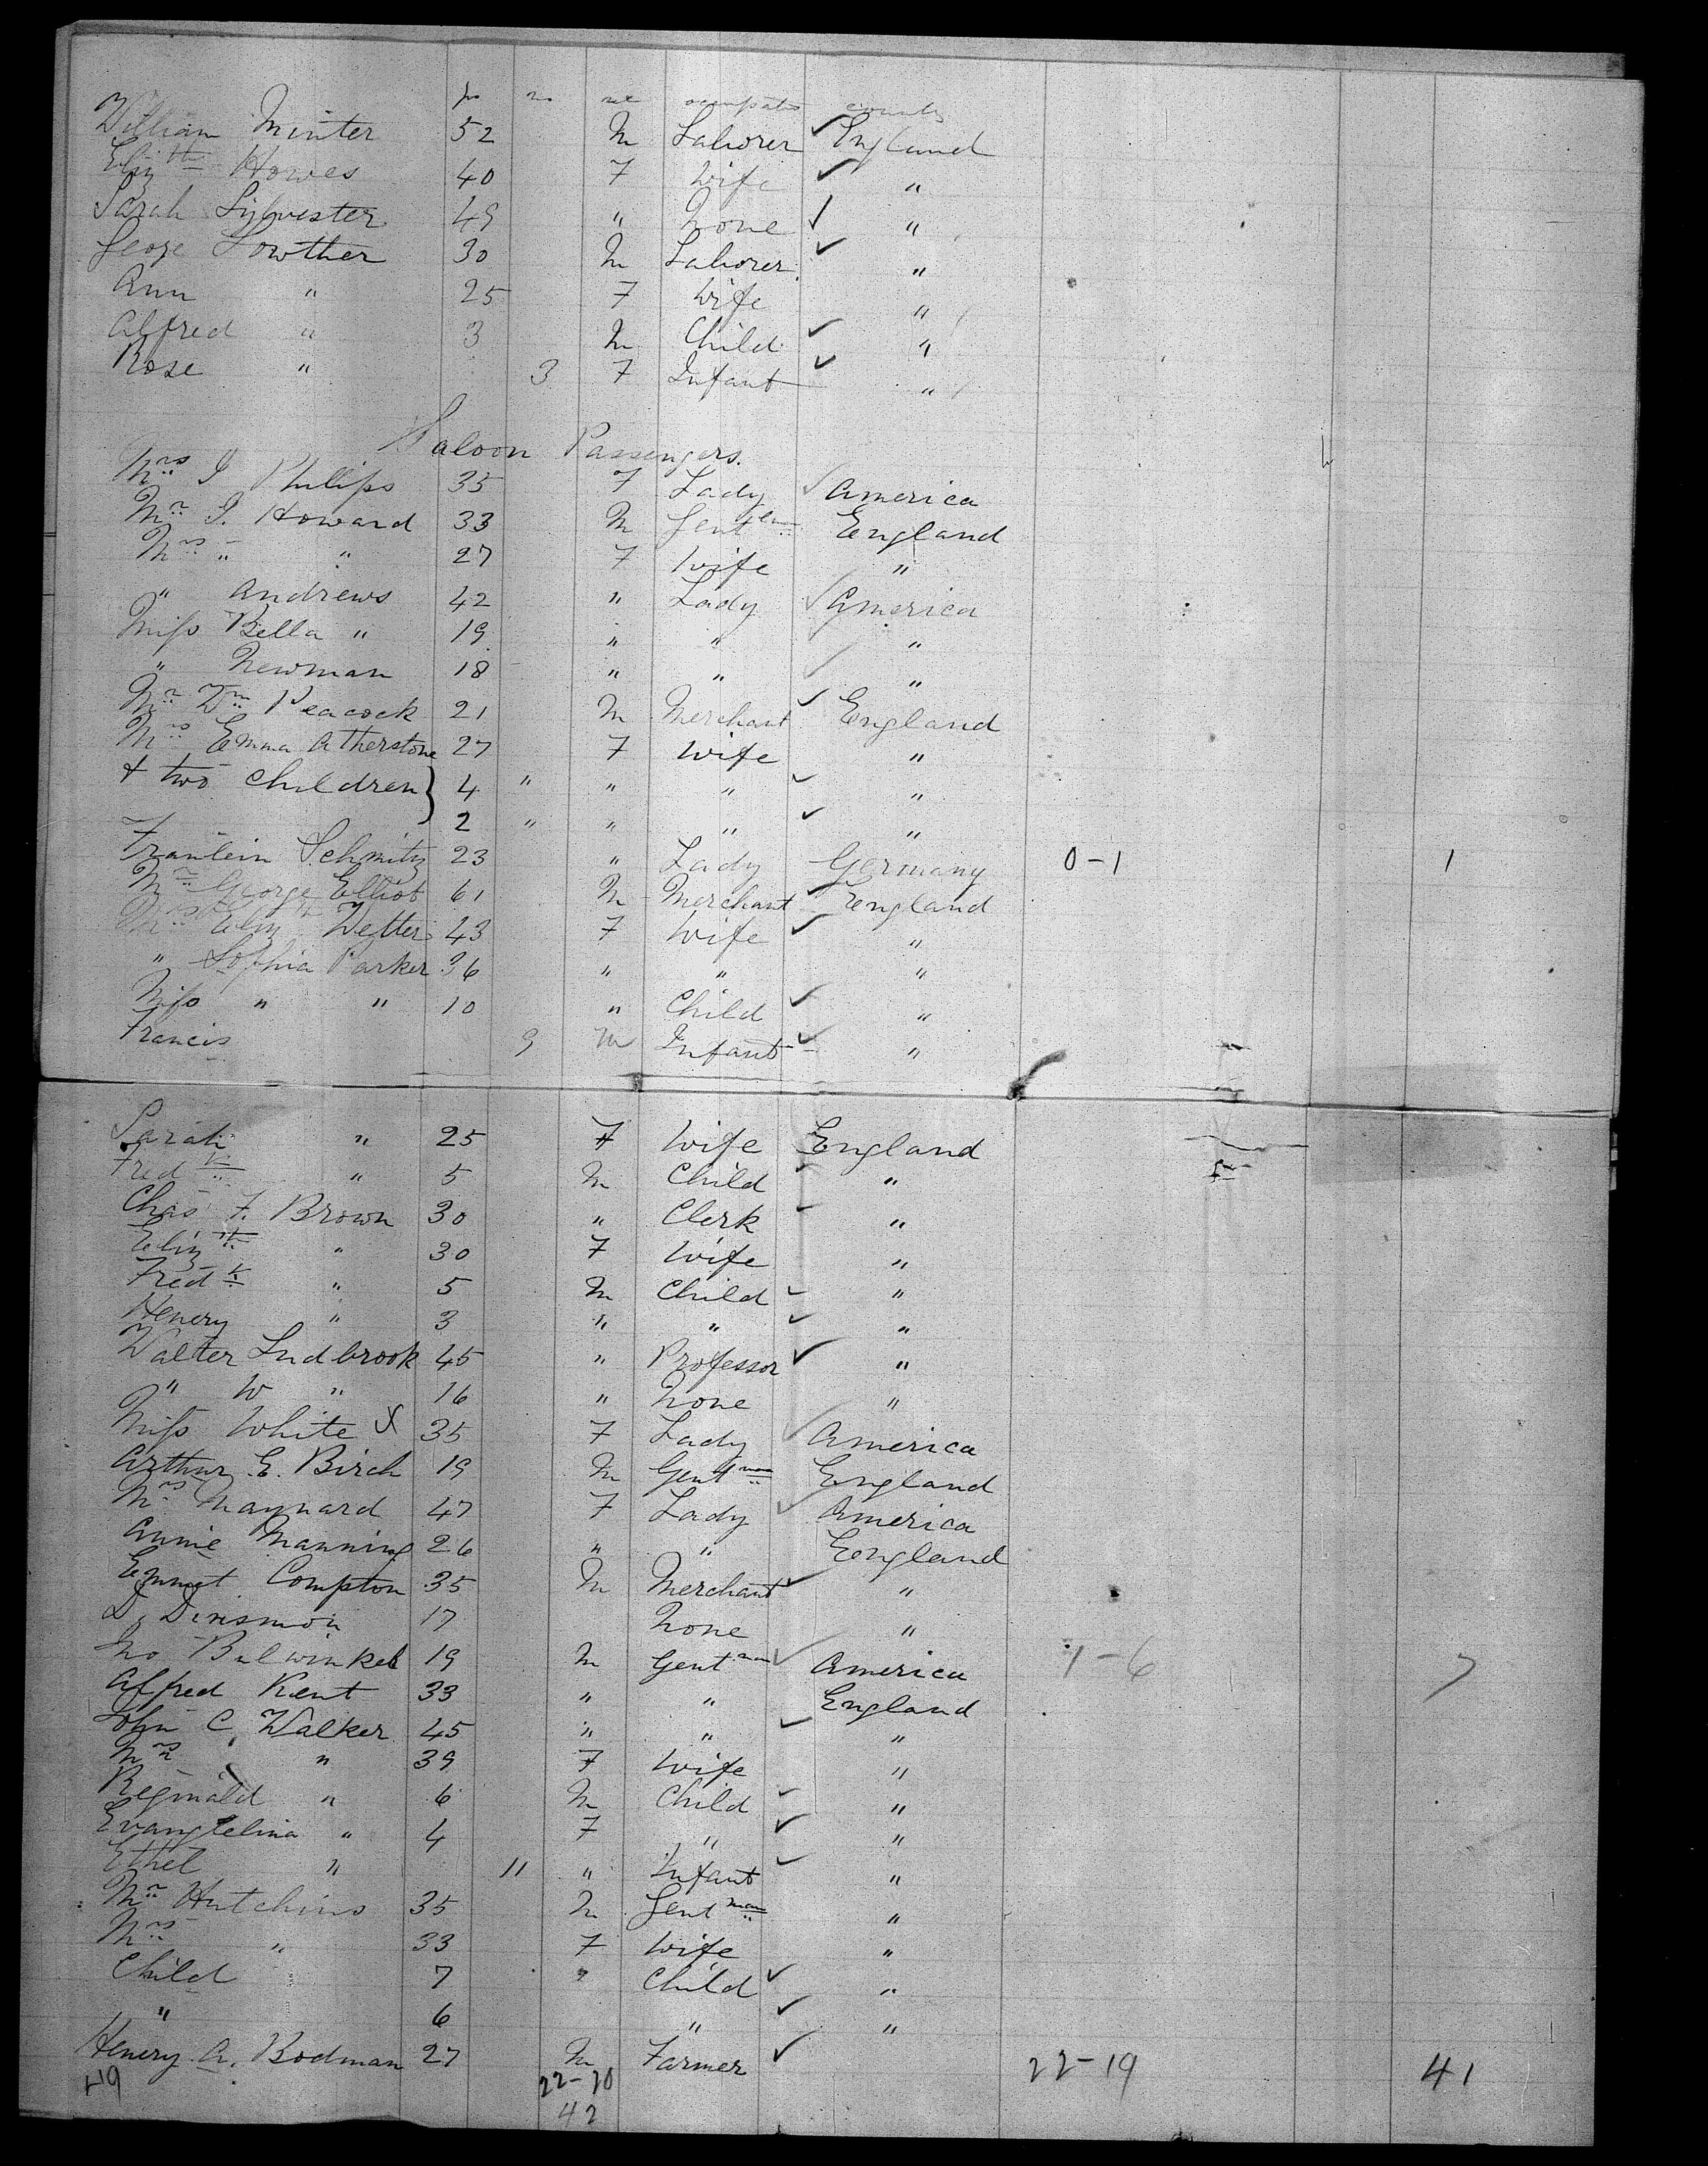 William Minter 52 M Laborer ✓ England
Eliz th Howes 40 F Wife ✓ "
Sarah Sylvester 49 " None ✓ "
George Lowther 30 M Laborer ✓ "
Ann " 25 F Wife "
Alfred " 3 M Child ✓ "
Rose " 3 F Infant ✓ "
Saloon Passengers.
Mrs J Phillips 35 F Lady ✓ America
Mr J. Howard 33 M Gentlmn England
Mrs " " 27 F Wife "
" Andrews 42 " Lady ✓ America
Miss Bella " 19 " " "
" Newman 18 " " ✓ "
Mr Wm Peacock 21 M Merchant ✓ England
Mrs Emma Atherstone 27 F Wife "
& two Children } 4 " " " ✓ "
2 " " " ✓ "
Fraulein Schmitz 23 " Lady Germany 0-1 1
Mr George Elliot 61 M Merchant ✓ England
Mrs Eliz th 43 F Wife ✓ "
" Sophia Parker 36 " " "
Miss " " 10 " Child ✓ "
Francis 9 M Infant ✓ "
Sarah " 25 F Wife England
Fred k " 5 M Child ✓ "
Chas F. Brown 30 " Clerk ✓ "
Eliz th " 30 F Wife "
Fred k " 5 M Child ✓ "
Henery " 3 " " ✓ "
Walter Ludbrook 45 " Professor ✓ "
" W " 16 " None "
Miss White X 35 F Lady ✓ America
Arthur E. Birch 19 M Gentman England
Mrs Maynard 47 F Lady ✓ America
Annie Manning 26 " " England
Emmet Compton 35 M Merchant ✓ "
D. 17 None "
Bulwinkel 19 M Gentman ✓ America 1-6 7
Alfred Kent 33 " " England
John C Walker 45 " " ✓ "
Mrs " 39 F Wife "
Reginald " 6 M Child ✓ "
Evangelina " 4 F " ✓ "
Ethel " 11 " Infant ✓ "
Mr Hutchins 35 M Gentman "
Mrs " 33 F Wife "
Child " 7 " Child ✓ "
" 6 " ✓ "
Henery A. Bodman 27 M Farmer ✓ 22-19 41
22-20
42